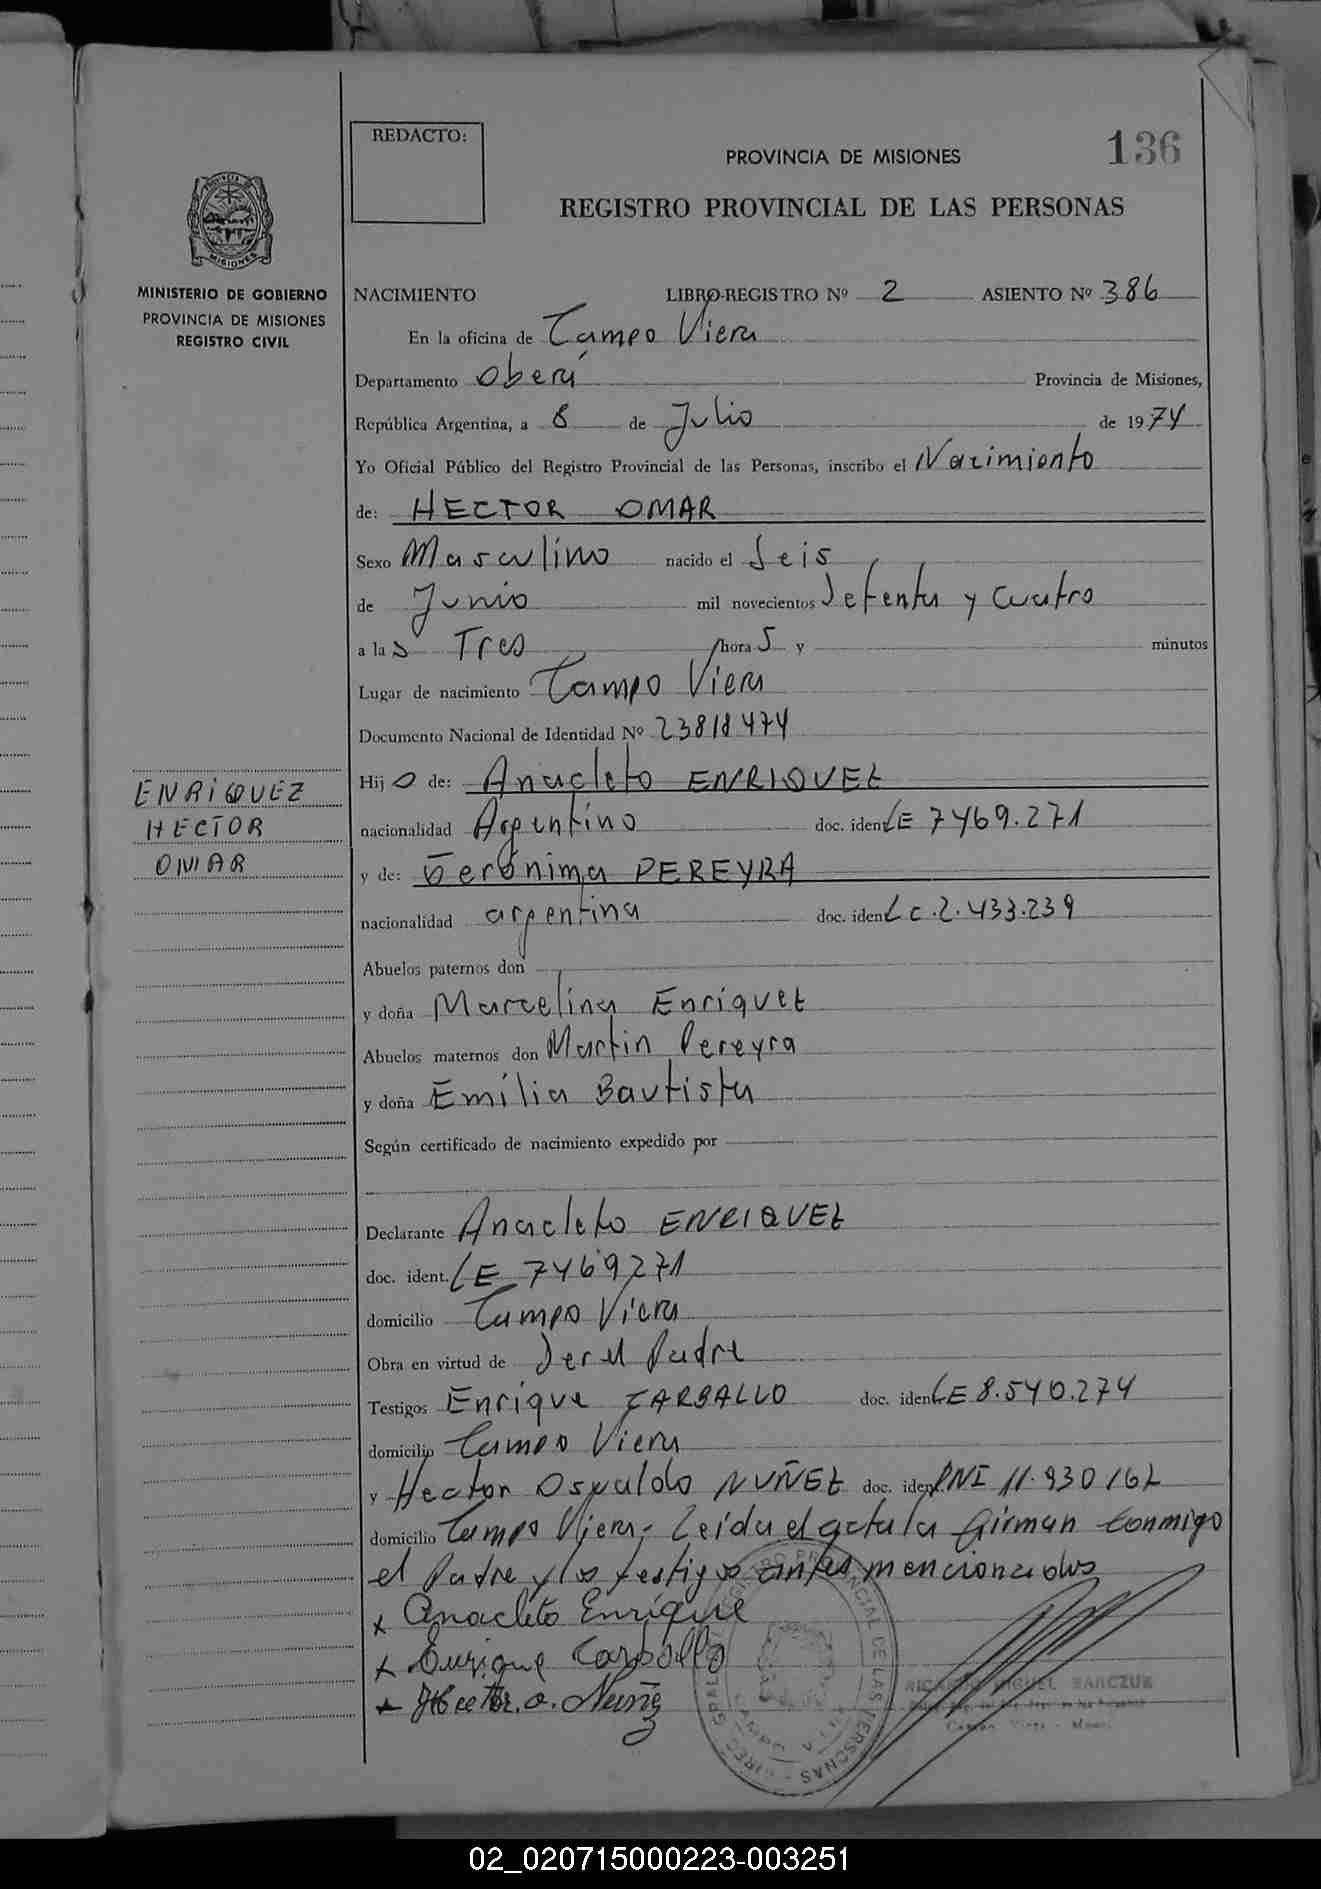 REDACTO:
136
PROVINCIA DE MISIONES
REGISTRO PROVINCIAL DE LAS PERSONAS
PROVINCIA DE
MISIONES
MINISTERIO DE GOBIERNO
PROVINCIA DE MISIONES
REGISTRO CIVIL
NACIMIENTO LIBRO-REGISTRO Nº 2 ASIENTO Nº 386
En la oficina de Campo Viera
Departamento Oberá Provincia de Misiones,
República Argentina, a 8 de Julio de 1974
Yo Oficial Público del Registro Provincial de las Personas, inscribo el Nacimiento
de: HECTOR OMAR
Sexo Masculino nacido el Seis
de Junio mil novecientos Setenta y Cuatro
a las Tres hora s y minutos
Lugar de nacimiento Campo Viera
Documento Nacional de Identidad Nº 23818474
Hijo de: Anacleto ENRIQUEZ
nacionalidad Argentino doc. ident LE 7469.271
y de: Gerónima PEREYRA
nacionalidad argentina doc. ident LC.2.433.239
ENRIQUEZ
HECTOR
OMAR
Abuelos paternos don
y doña Marcelina Enriquez
Abuelos maternos don Martin Pereyra
y doña Emilia Bautista
Según certificado de nacimiento expedido por
Declarante Anacleto ENRIQUEZ
doc. ident. LE 7469271
domicilio Campo Viera
Obra en virtud de Ser el Padre
Testigos Enrique CARBALLO doc. ident LE 8.540.274
domicilio Campo Viera
y Hector Osvaldo NUÑEZ doc. ident DNI 11.930162
domicilio Campo Viera- Leída el acta la firman Conmigo
el Padre y los testigos antes mencionados
x Anacleto Enrique
x Enrique Carballo
x Hector. O. Nuñez
RICARDO MIGUEL BARCZUK
Campo Viera - Mnes.
02_020715000223-003251